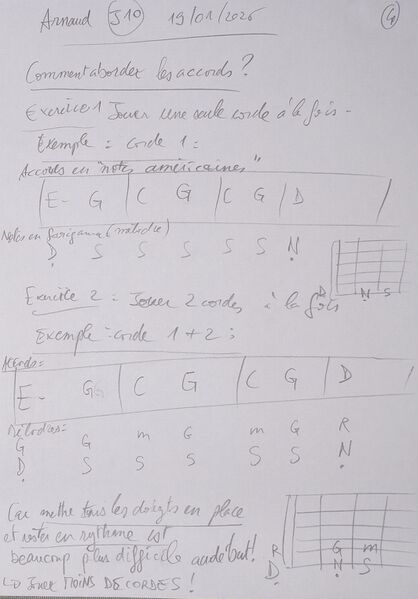 Arnaud J10 19/01/2026
Comment aborder les accords ?
Exercice 1 Jouer une seule corde à la fois -
Exemple : corde 1 :
Accords en "notes américaines"
E- G | C G | C G | D
Notes en (mélodie)
D S S S S S N
D N S
Exercice 2 : Jouer 2 cordes à la fois
Exemple : corde 1 + 2 :
Accords =
E- G | C G | C G | D
Mélodies =
G G m G m G R
D S S S S S N
Car mettre tous les doigts en place
et rester en rythme est
beaucoup plus difficile au début !
R G m
D N S
↳ Jouer MOINS DE CORDES !